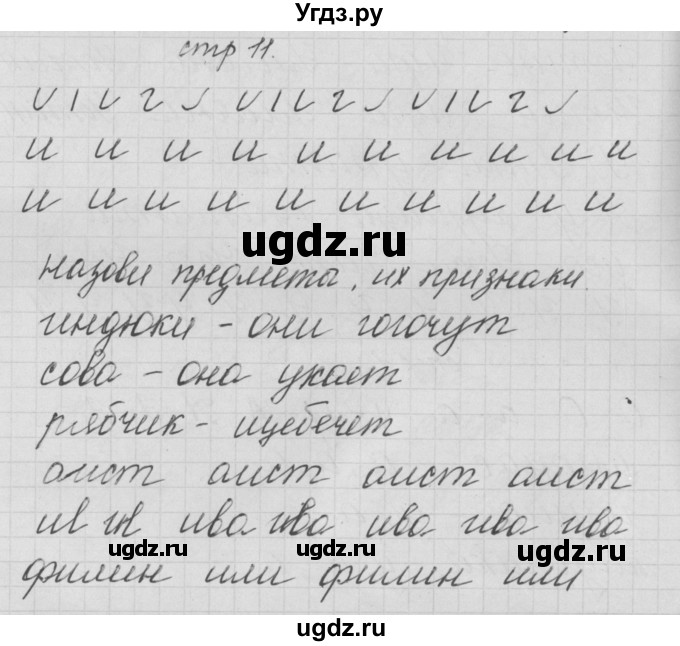 Угдз.ру
стр 11.
и и и и и и и и и и
и и и и и и и и и и
Назови предмета, их признаки.
индюки - они гогочут
сова - она укает
рябчик - щебечет
аист аист аист аист
ив ив ива ива ива ива ива
филин или филин или
ugdz.ru
ugdz.ru
ugdz.ru
ugdz.ru
ugdz.ru